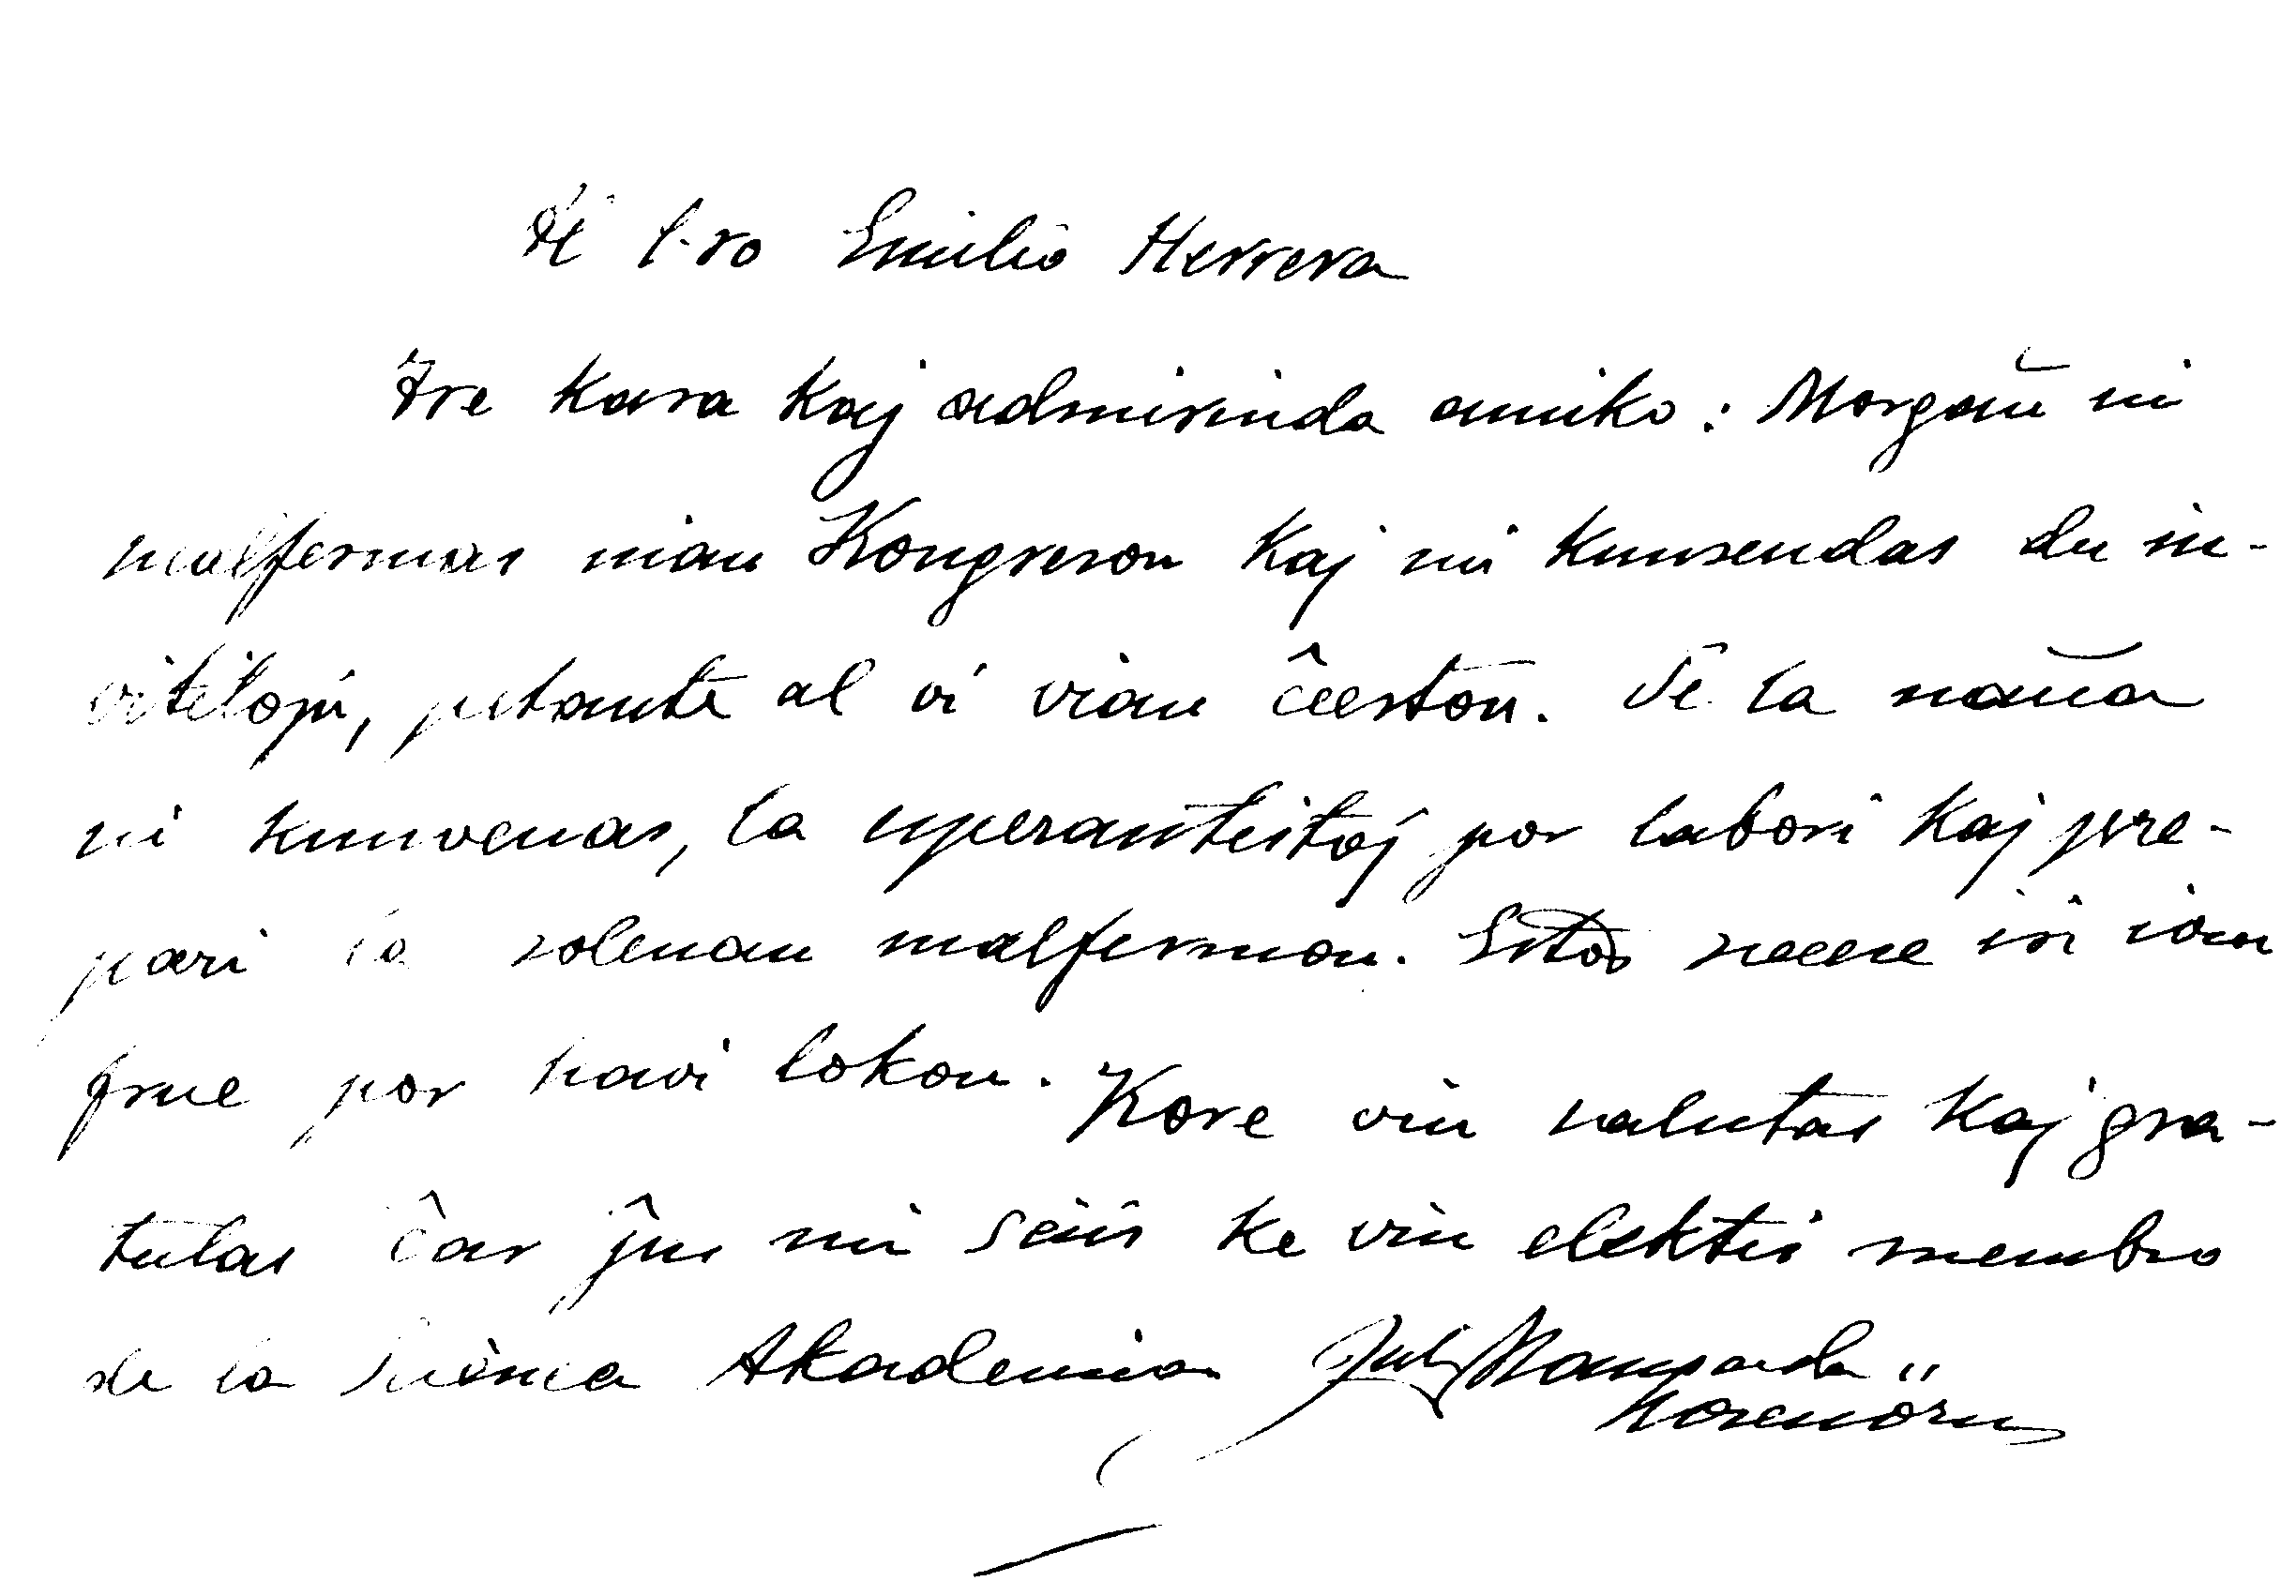 Al S-ro Emilio Herrera
Tre kara kaj admirinda amiko: Morgaŭ ni
malfermas nian Kongreson kaj mi kunsendas du in-
vitilojn, petante al vi vian ĉeeston. Je la naŭa
ni kunvenas, la esperantistoj por labori kaj pre-
pari la solenan malfermon. Estos necese iri iom
frue por havi lokon. Kore vin salutas kaj gra-
tulas ĉar ĵus mi sciis ke vin elektis membro
de la Scienca Akademio Julio Mangada
Rosenörn